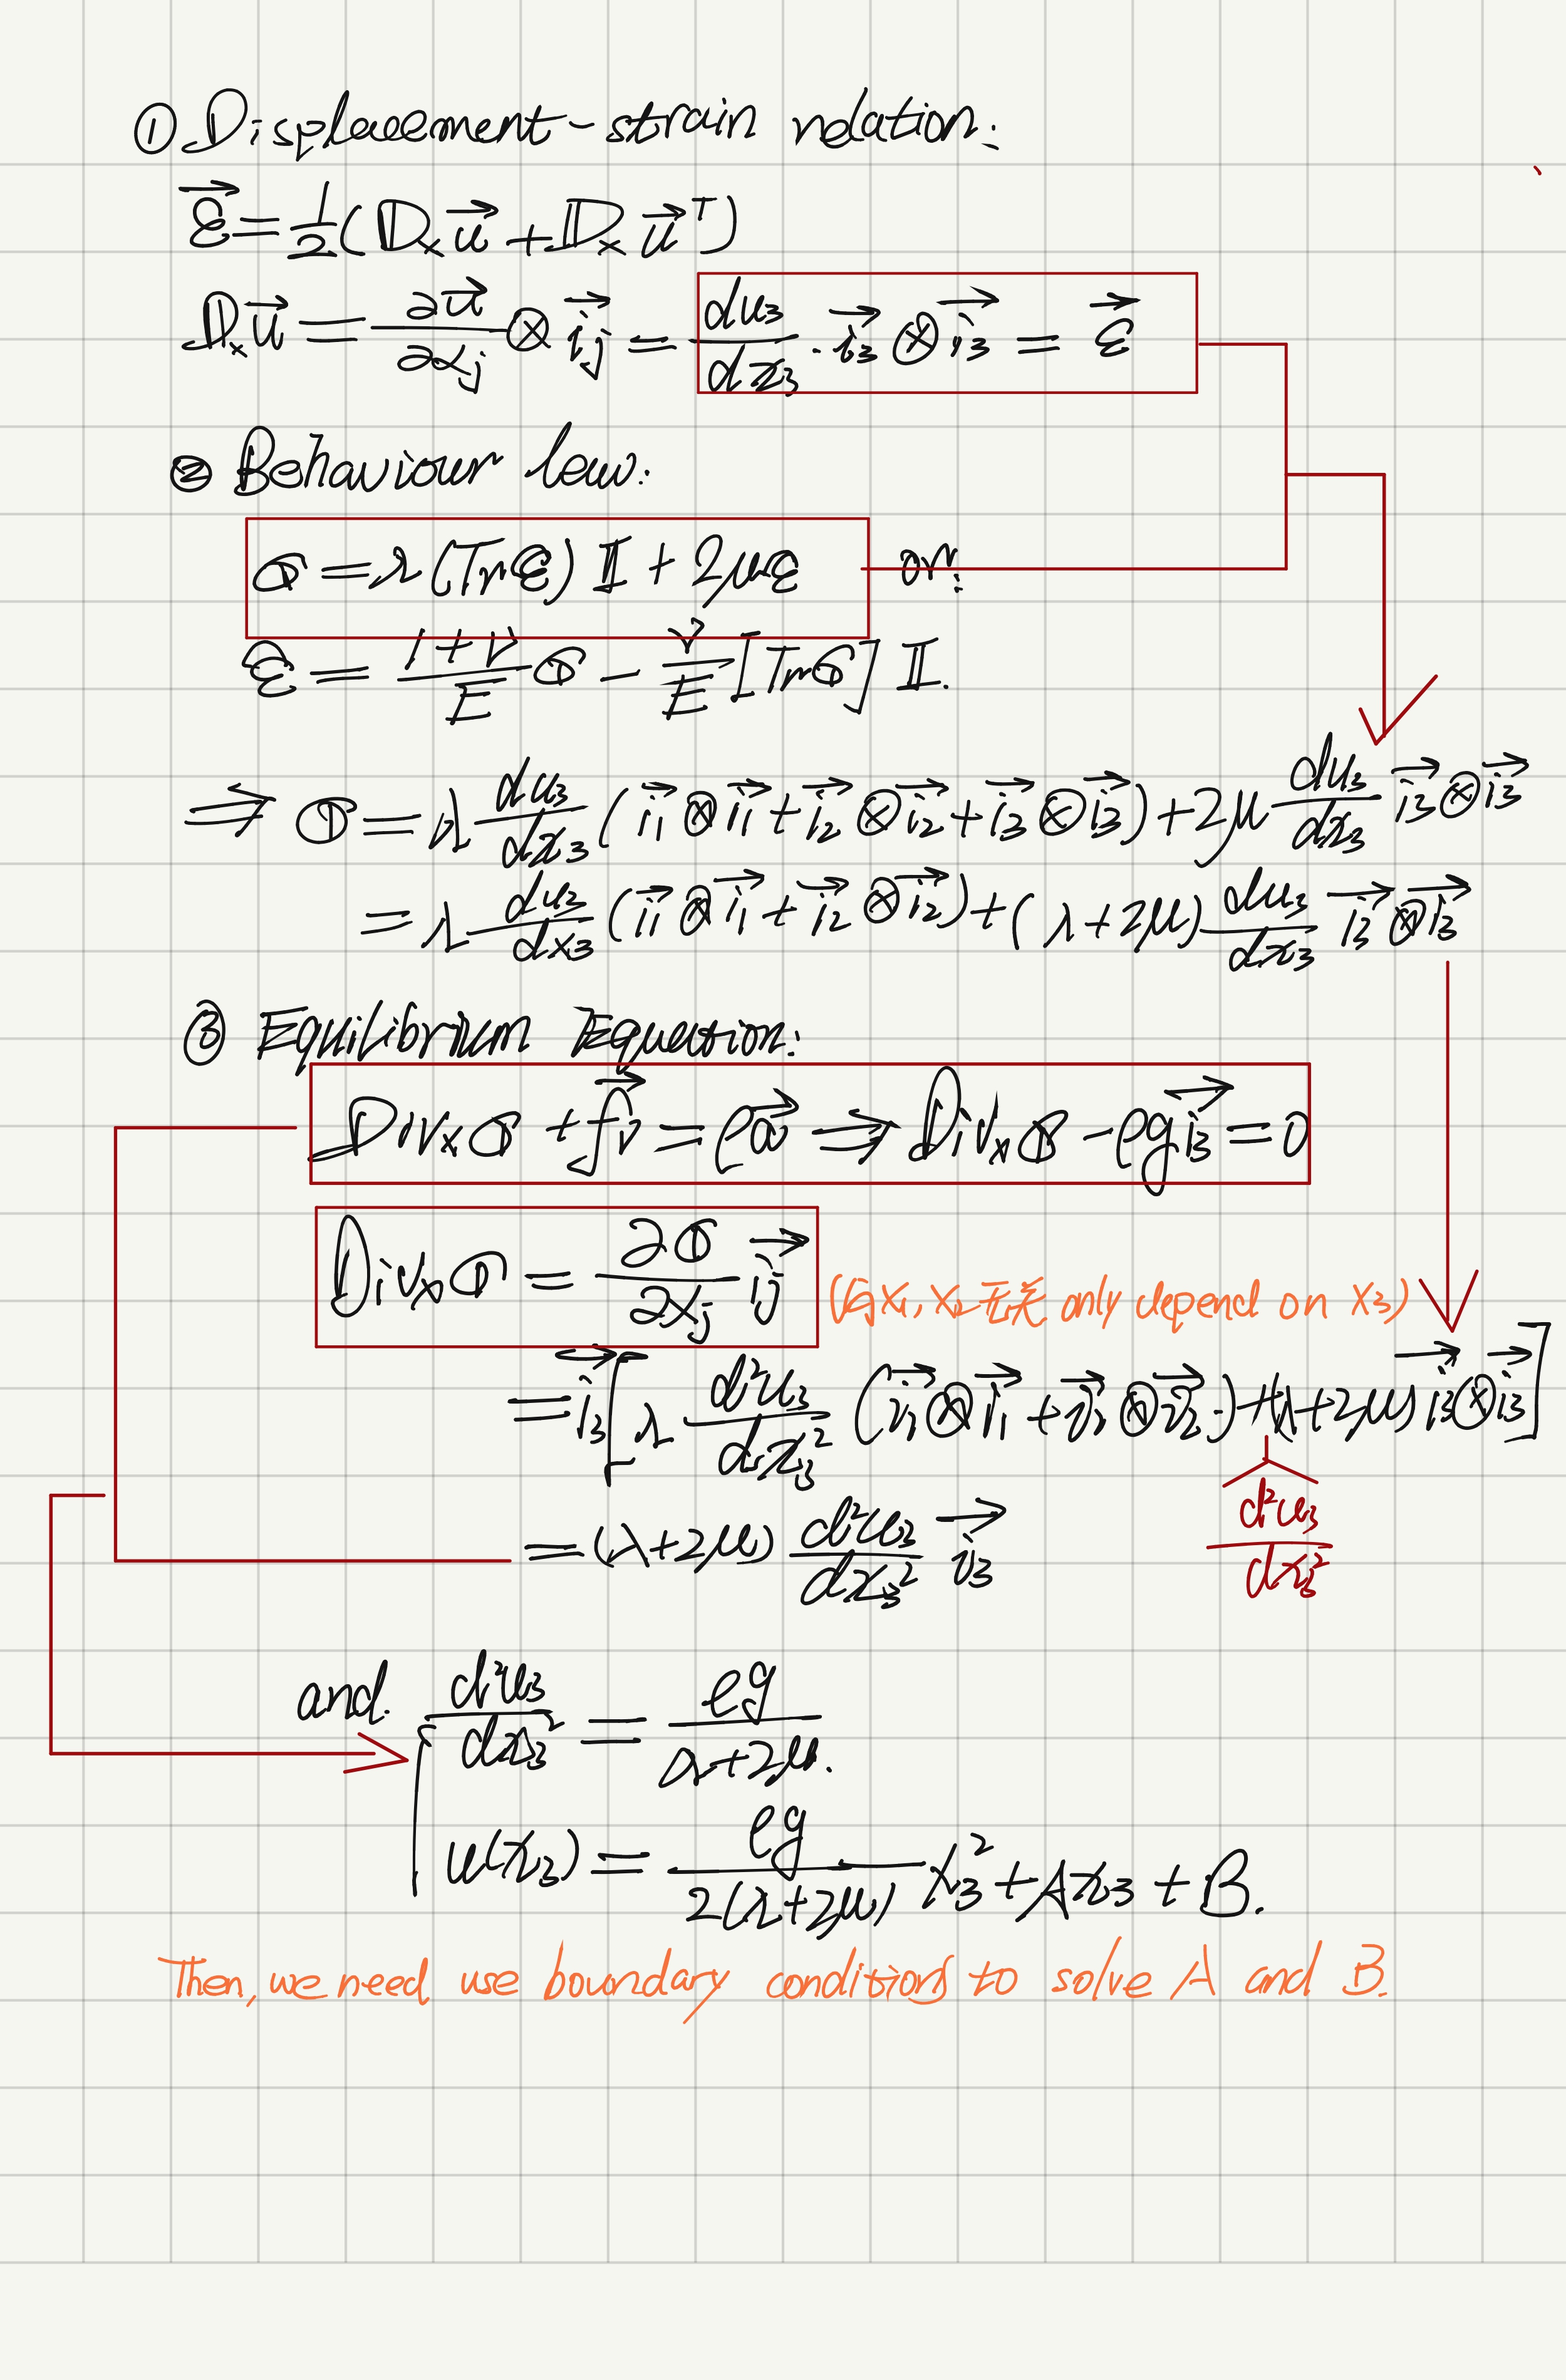 ① Displacement-strain relation:
ε⃗ = 1/2 (𝔻ₓu⃗ + 𝔻ₓu⃗ᵀ)
𝔻ₓu⃗ = ∂u⃗/∂xⱼ ⊗ i⃗ⱼ = du₃/dx₃ · i⃗₃ ⊗ i⃗₃ = ε⃗
② Behaviour law:
σ = λ(Trε) 𝕀 + 2με or:
ε = (1+ν)/E σ - ν/E [Trσ] 𝕀.
⇒ σ = λ du₃/dx₃ (i⃗₁⊗i⃗₁ + i⃗₂⊗i⃗₂ + i⃗₃⊗i⃗₃) + 2μ du₃/dx₃ i⃗₃⊗i⃗₃
= λ du₃/dx₃ (i⃗₁⊗i⃗₁ + i⃗₂⊗i⃗₂) + (λ+2μ) du₃/dx₃ i⃗₃⊗i⃗₃
③ Equilibrium Equation:
Divₓσ + f⃗ᵥ = ρa⃗ ⇒ Divₓσ - ρg i⃗₃ = 0
Divₓσ = ∂σ/∂xⱼ i⃗ⱼ (与x₁, x₂无关 only depend on x₃)
= i⃗₃ [λ d²u₃/dx₃² (i⃗₁⊗i⃗₁ + i⃗₂⊗i⃗₂) + (λ+2μ) i⃗₃⊗i⃗₃]
d²u₃/dx₃²
= (λ+2μ) d²u₃/dx₃² i⃗₃
and. d²u₃/dx₃² = ρg/(λ+2μ).
u(x₃) = ρg/2(λ+2μ) x₃² + Ax₃ + B.
Then, we need use boundary conditions to solve A and B.